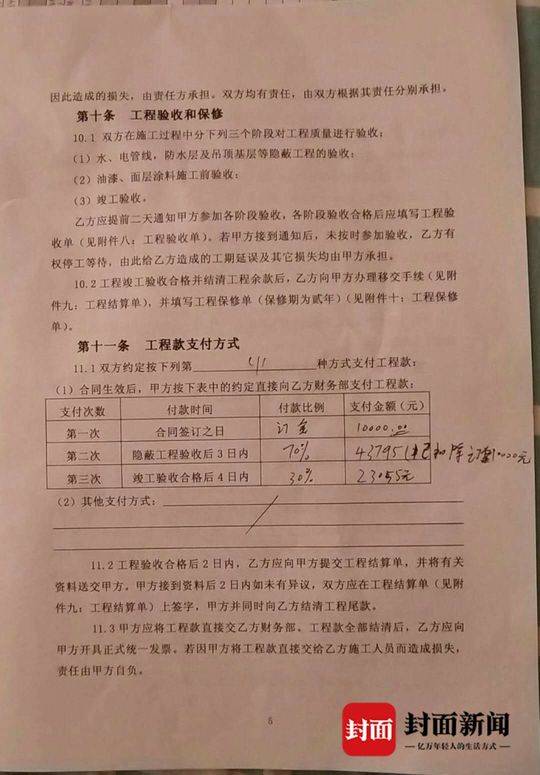 因此造成的损失，由责任方承担。双方均有责任，由双方根据其责任分别承担。
第十条 工程验收和保修
10.1 双方在施工过程中分下列三个阶段对工程质量进行验收：
（1）水、电管线，防水层及吊顶基层等隐蔽工程的验收；
（2）油漆、面层涂料施工前验收；
（3）竣工验收。
乙方应提前二天通知甲方参加各阶段验收，各阶段验收合格后应填写工程验
收单（见附件八：工程验收单）。若甲方接到通知后，未按时参加验收，乙方有
权停工等待，由此给乙方造成的工期延误及其它损失均由甲方承担。
10.2 工程竣工验收合格并结清工程余款后，乙方向甲方办理移交手续（见附
件九：工程结算单），并填写工程保修单（保修期为贰年）（见附件十：工程保修
单）。
第十一条 工程款支付方式
11.1 双方约定按下列第 (1) 种方式支付工程款：
（1）合同生效后，甲方按下表中的约定直接向乙方财务部支付工程款：
支付次数 付款时间 付款比例 支付金额（元）
第一次 合同签订之日 订金 10000.00
第二次 隐蔽工程验收后 3 日内 70% 43795（已扣除订金10000元
第三次 竣工验收合格后 4 日内 30% 23055元
（2）其他支付方式：
11.2 工程验收合格后 2 日内，乙方应向甲方提交工程结算单，并将有关
资料送交甲方。甲方接到资料后 2 日内如未有异议，双方应在工程结算单（见附
件九：工程结算单）上签字，甲方并同时向乙方结清工程尾款。
11.3 甲方应将工程款直接交乙方财务部。工程款全部结清后，乙方应向
甲方开具正式统一发票。若因甲方将工程款直接交给乙方施工人员而造成损失，
责任由甲方自负。
封面 封面新闻
亿万年轻人的生活方式